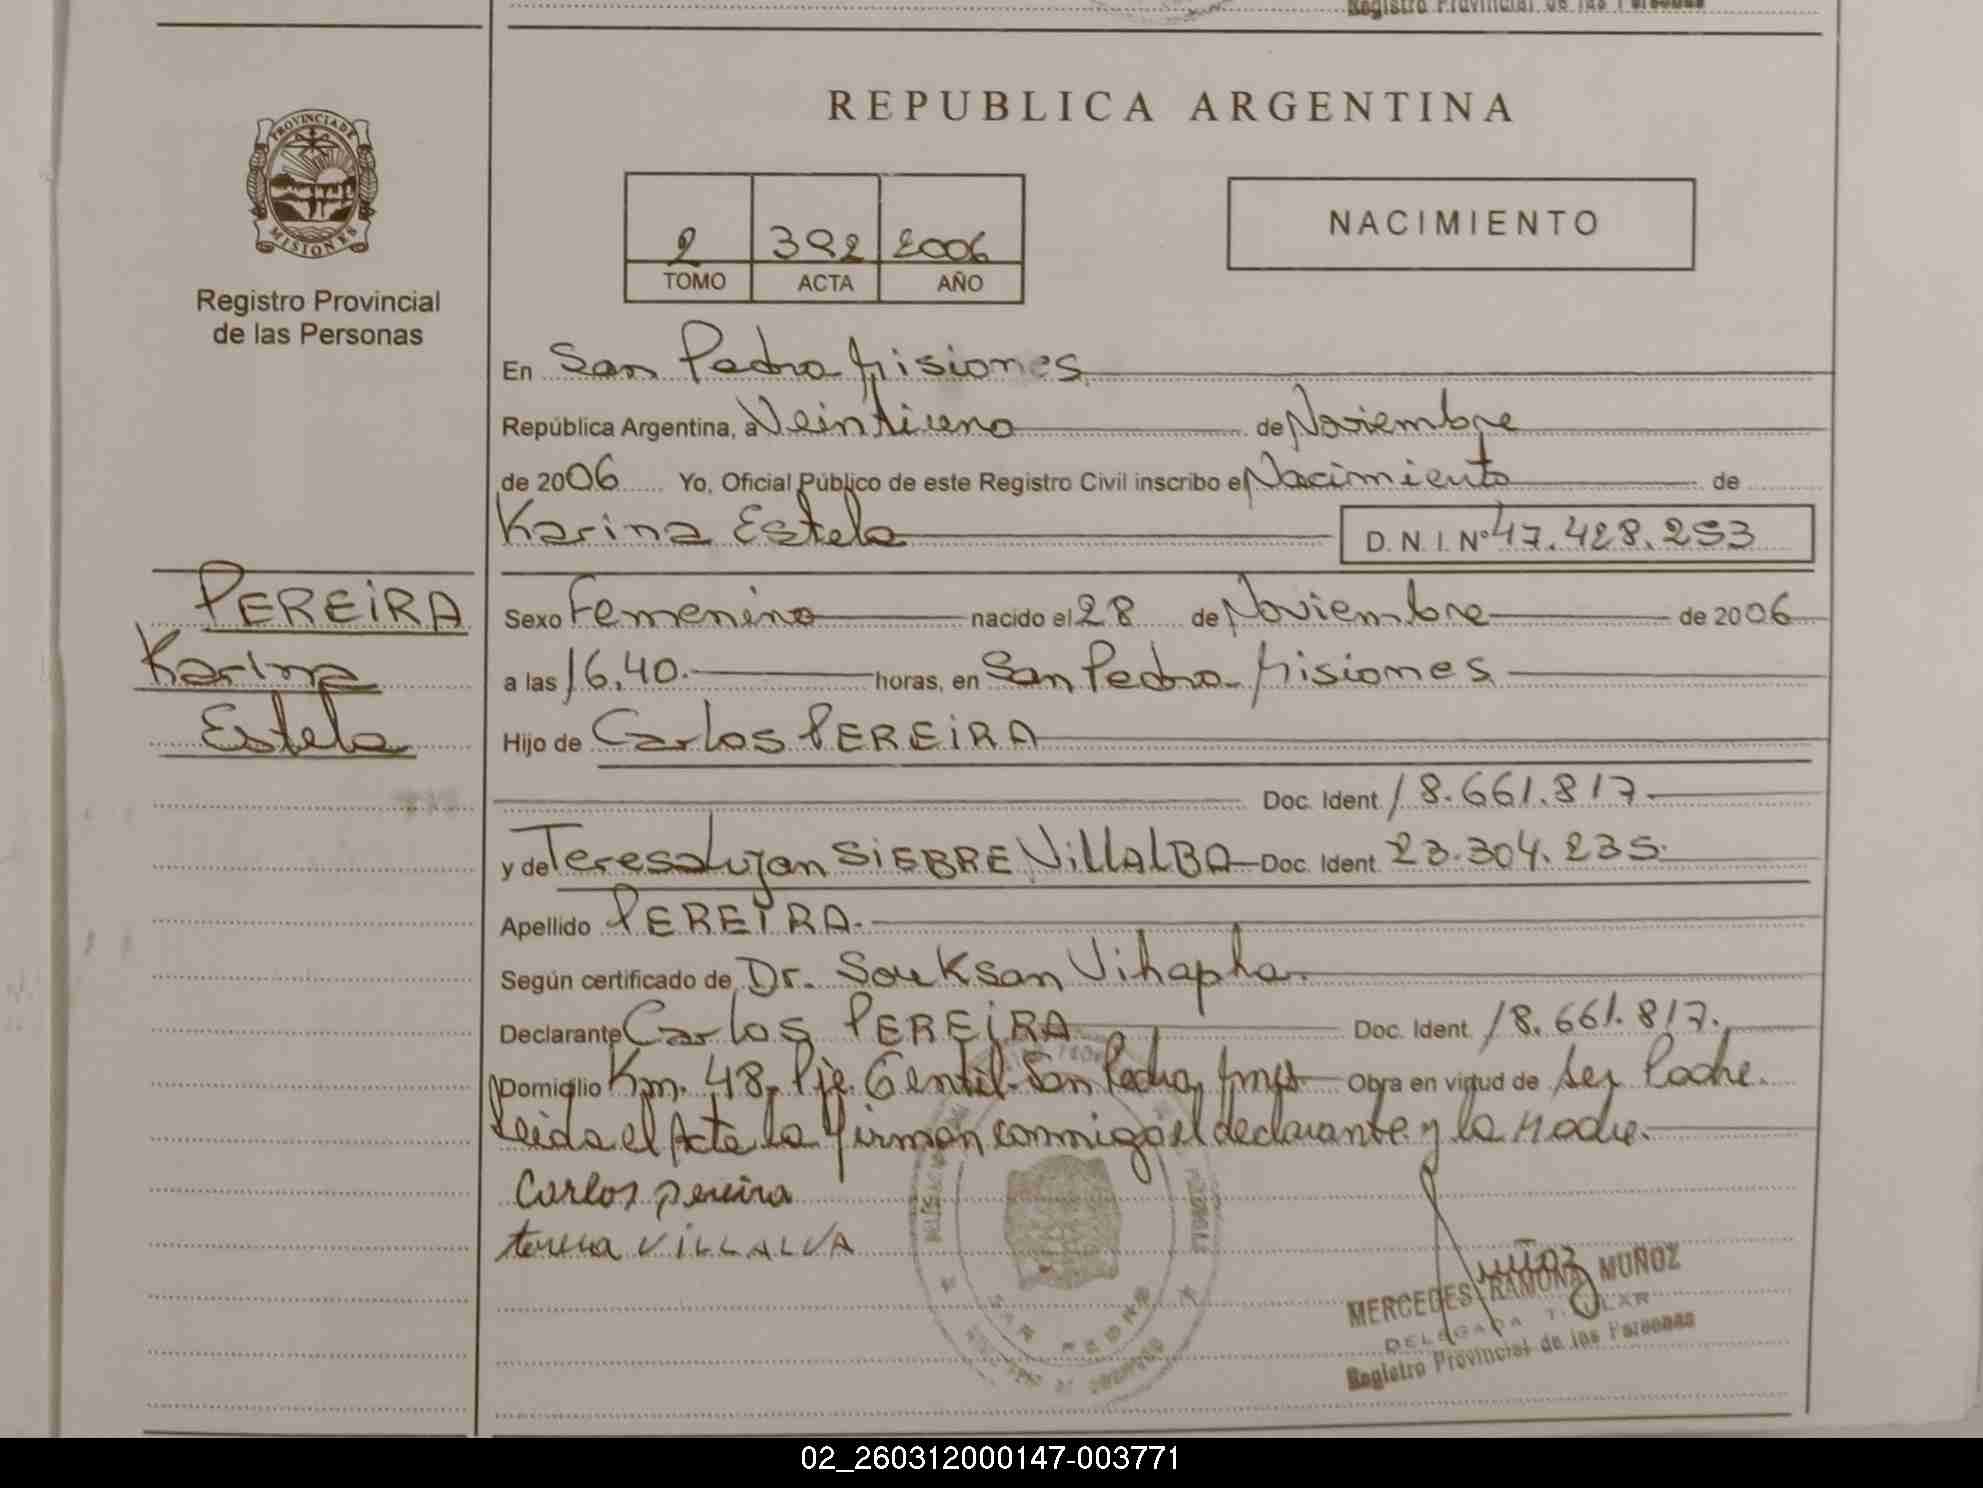 Registro Provincial de las Personas
REPUBLICA ARGENTINA
PROVINCIA DE
MISIONES
Registro Provincial
de las Personas
2 392 2006
TOMO ACTA AÑO
NACIMIENTO
En San Pedro Misiones
República Argentina, a Veintiuno de Noviembre
de 2006 Yo, Oficial Público de este Registro Civil inscribo el Nacimiento de
Karina Estela D.N.I. Nº 47.428.253
PEREIRA
Karina
Estela
Sexo Femenino nacido el 28 de Noviembre de 2006
a las 16,40. horas, en San Pedro Misiones
Hijo de Carlos PEREIRA
Doc. Ident. 18.661.817.
y de Teresa Lujan SIEBRE VILLALBA Doc. Ident. 23.304.235.
Apellido PEREIRA.
Según certificado de Dr. Souksan Vihapha.
Declarante Carlos PEREIRA Doc. Ident. 18.661.817.
Domicilio Km. 48, Pje. Gentil. San Pedro, Mnes Obra en virtud de ser Padre.
Leida el Acta la firman conmigo el declarante y la Madre.
Carlos pereira
teresa VILLALVA
SAN PEDRO
MERCEDES RAMONA MUÑOZ
DELEGADA TITULAR
Registro Provincial de las Personas
02_260312000147-003771